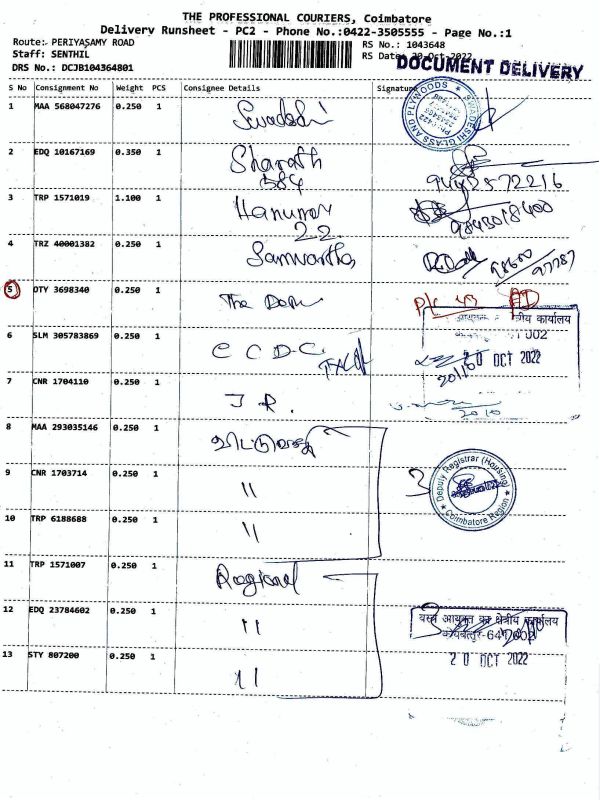 THE PROFESSIONAL COURIERS, Coimbatore
Delivery Runsheet - PC2 - Phone No.:0422-3505555 - Page No.:1
Route: PERIYASAMY ROAD RS No.: 1043648
Staff: SENTHIL RS Date: 20-Oct-2022
DRS No.: DCJB104364801 DOCUMENT DELIVERY
S No Consignment No Weight PCS Consignee Details Signature
1 MAA 568047276 0.250 1 Swadeshi
SWADESHI GLASS AND PLYWOODS
2 EDQ 10167169 0.350 1 Sharath 9442572216
3 TRP 1571019 1.100 1 Hanuman 9843018400
22.
4 TRZ 40001382 0.250 1 Samvartha
5 DTY 3698340 0.250 1 The
क्षेत्रीय कार्यालय
6 SLM 305783869 0.250 1 C C D C 20 OCT 2022
7 CNR 1704110 0.250 1 J R.
8 MAA 293035146 0.250 1
9 CNR 1703714 0.250 1 "
3 Deputy Registrar (Housing)
Coimbatore Region
10 TRP 6188688 0.250 1 "
11 TRP 1571007 0.250 1 Regional
12 EDQ 23784602 0.250 1 "
वस्त्र आयुक्त का क्षेत्रीय कार्यालय
13 STY 807200 0.250 1 "
20 OCT 2022